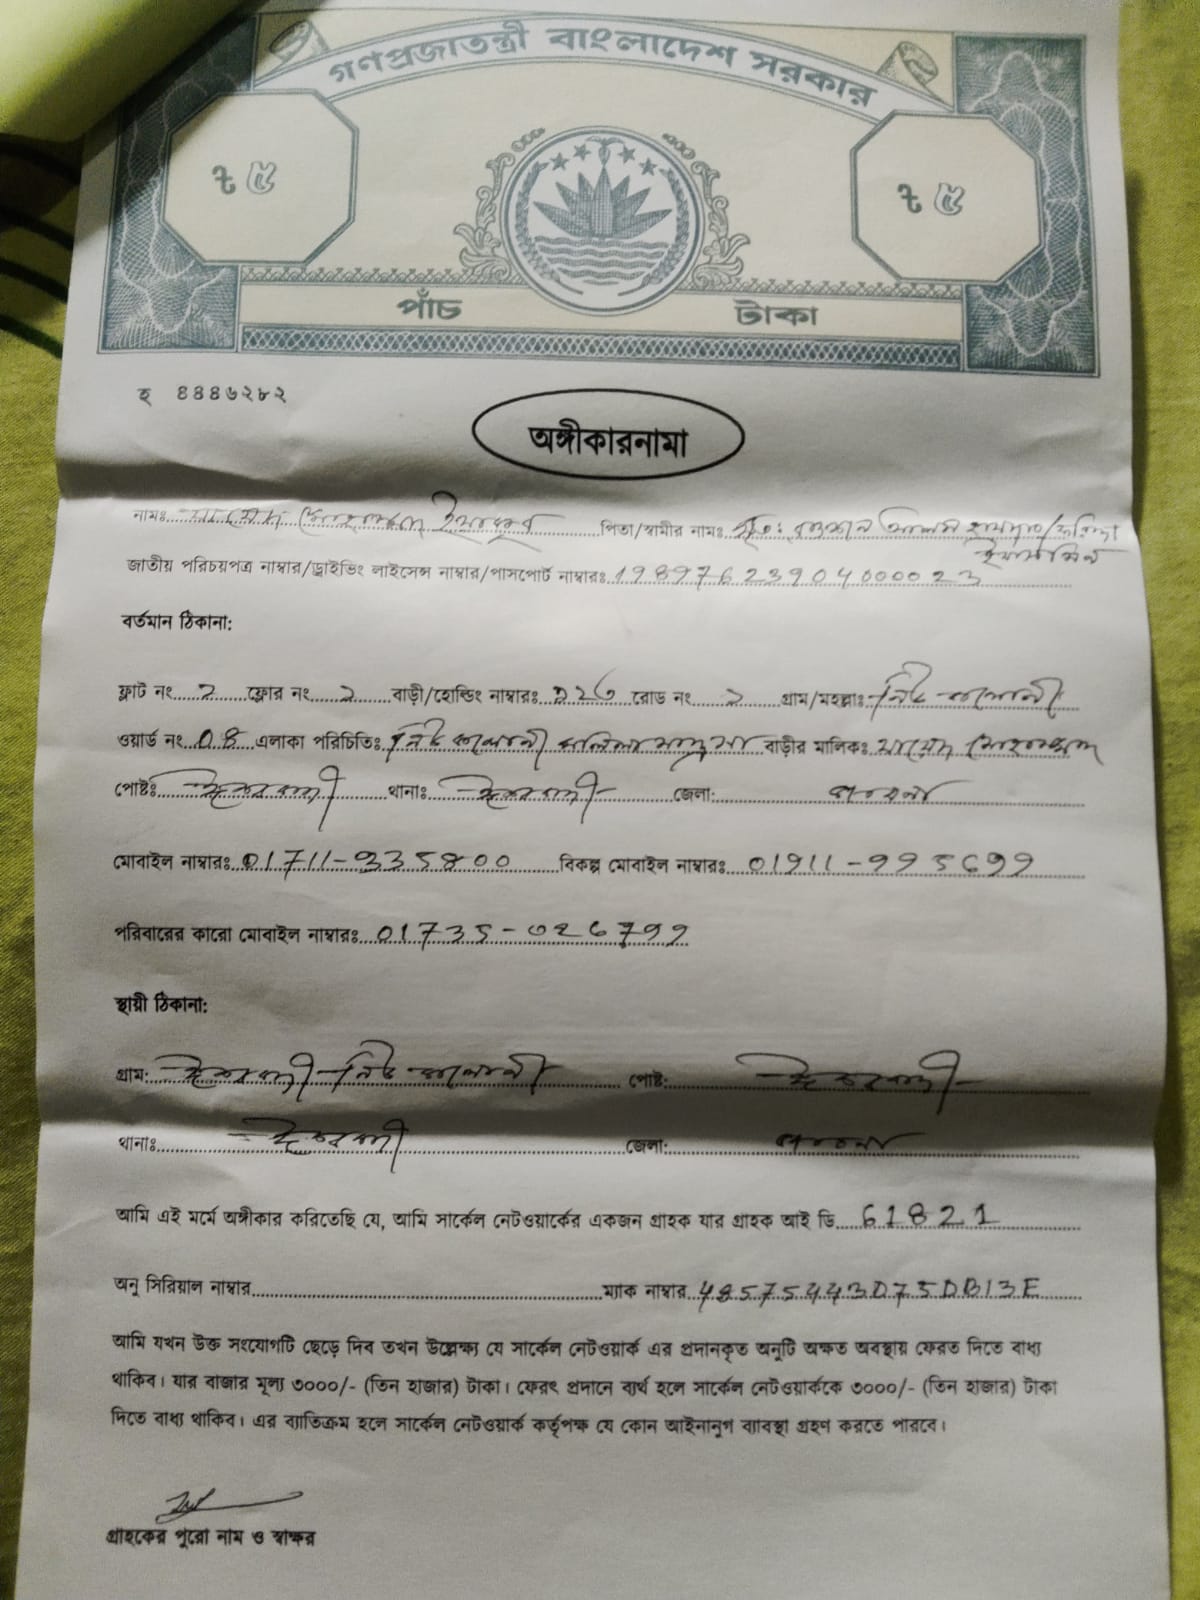 গণপ্রজাতন্ত্রী বাংলাদেশ সরকার
৳ ৫ ৳ ৫
পাঁচ টাকা
হ ৪৪৪৬২৮২
অঙ্গীকারনামা
নামঃ পিতা/স্বামীর নামঃ
ইয়াসমিন
জাতীয় পরিচয়পত্র নাম্বার/ড্রাইভিং লাইসেন্স নাম্বার/পাসপোর্ট নাম্বারঃ 19897623904000023
বর্তমান ঠিকানা:
ফ্লাট নং 2 ফ্লোর নং 2 বাড়ী/হোল্ডিং নাম্বারঃ রোড নং 2 গ্রাম/মহল্লাঃ নিউ কলোনী
ওয়ার্ড নং 04 এলাকা পরিচিতিঃ নিউ কলোনী বাড়ীর মালিকঃ
পোষ্টঃ ঈশ্বরদী থানাঃ ঈশ্বরদী জেলা: পাবনা
মোবাইল নাম্বারঃ 01711-935800 বিকল্প মোবাইল নাম্বারঃ 01911-995699
পরিবারের কারো মোবাইল নাম্বারঃ
স্থায়ী ঠিকানা:
গ্রাম: ঈশ্বরদী নিউ কলোনী পোষ্ট: ঈশ্বরদী
থানাঃ ঈশ্বরদী জেলা: পাবনা
আমি এই মর্মে অঙ্গীকার করিতেছি যে, আমি সার্কেল নেটওয়ার্কের একজন গ্রাহক যার গ্রাহক আই ডি 61821
অনু সিরিয়াল নাম্বার ম্যাক নাম্বার 485754430750B13E
আমি যখন উক্ত সংযোগটি ছেড়ে দিব তখন উল্লেক্ষ্য যে সার্কেল নেটওয়ার্ক এর প্রদানকৃত অনুটি অক্ষত অবস্থায় ফেরত দিতে বাধ্য
থাকিব। যার বাজার মূল্য ৩০০০/- (তিন হাজার) টাকা। ফেরৎ প্রদানে ব্যর্থ হলে সার্কেল নেটওয়ার্ককে ৩০০০/- (তিন হাজার) টাকা
দিতে বাধ্য থাকিব। এর ব্যাতিক্রম হলে সার্কেল নেটওয়ার্ক কর্তৃপক্ষ যে কোন আইনানুগ ব্যাবস্থা গ্রহণ করতে পারবে।
গ্রাহকের পুরো নাম ও স্বাক্ষর